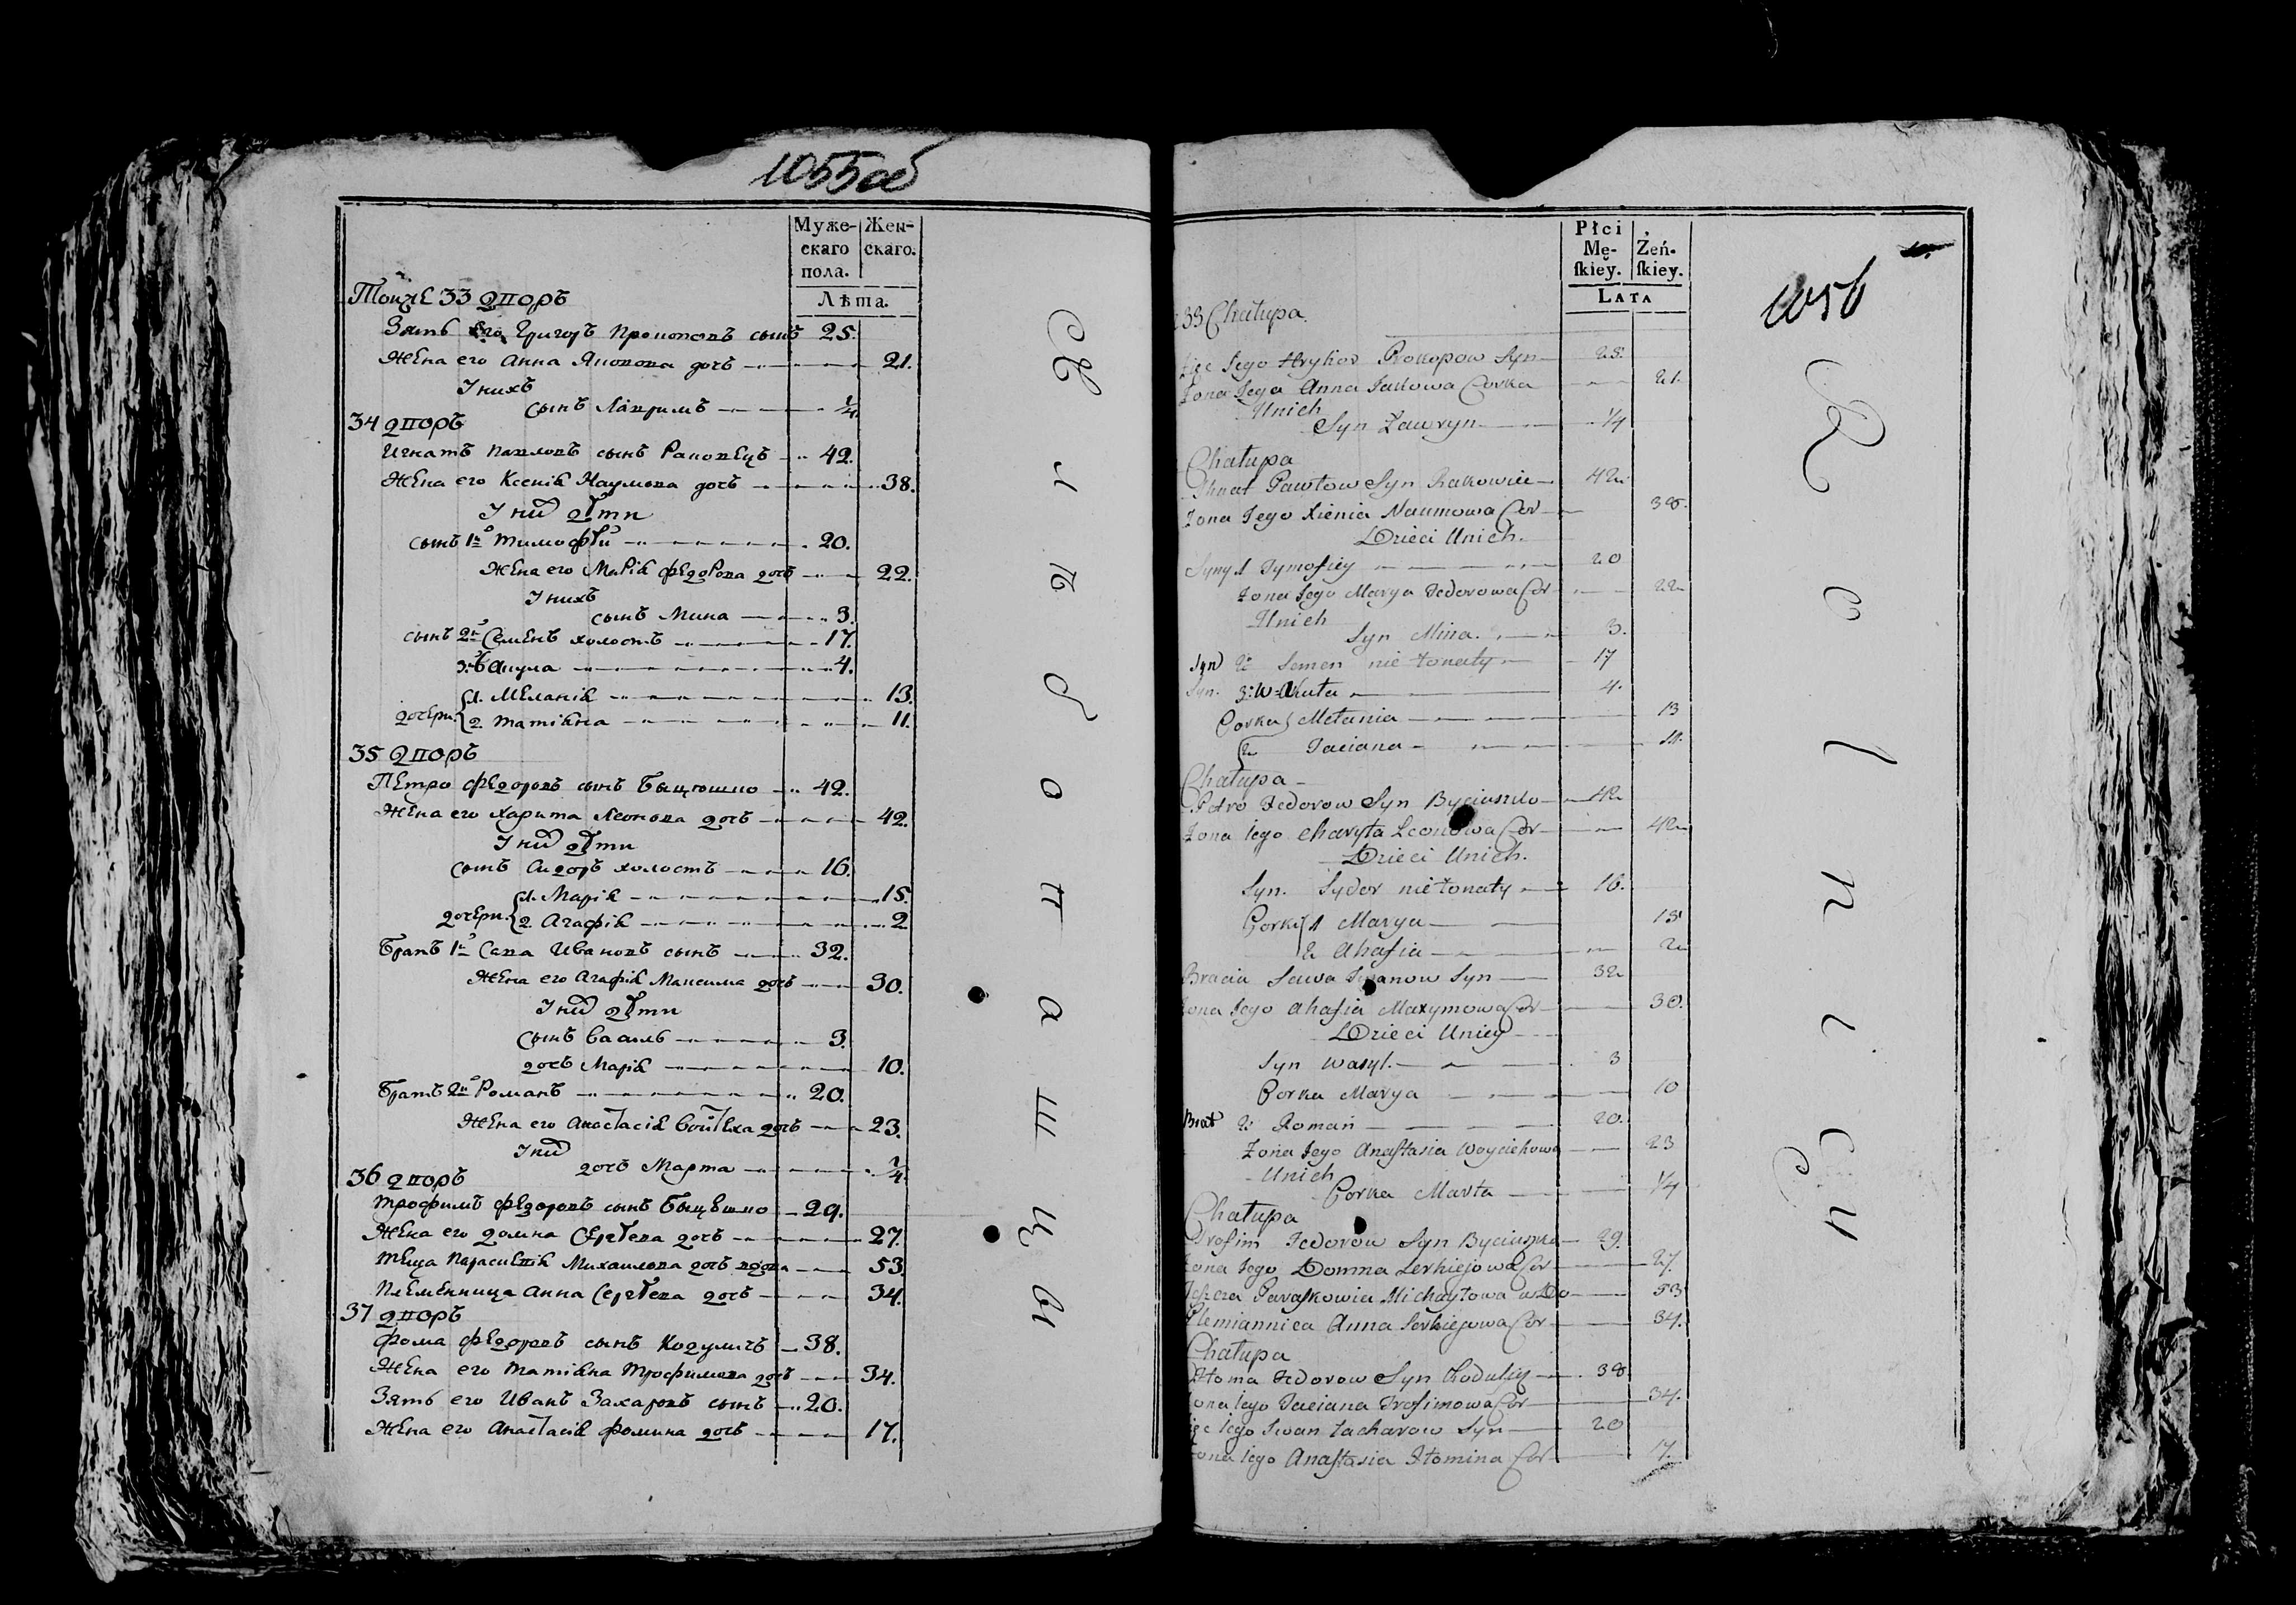 1055об
Муже- Жен-
скаго скаго.
пола.
Лѣта.
Тойже 33 дворъ
Зять его Григоръ Прокоповъ сынъ 25.
Жена его Анна Яковова дочь 21.
У нихъ
сынъ Лавримъ 1/4
34 дворъ
Игнатъ Павловъ сынъ Раковецъ 42.
Жена его Ксенія Наумова дочь 38.
У них дѣти
сынъ 1й Тимофѣй 20.
Жена его Марія Федорова дочь 22.
У нихъ
сынъ Мина 3.
сынъ 2й Семенъ холостъ 17.
3:й Акула 4.
дочери. 1. Меланія 13.
2. Татіяна 11.
35 дворъ
Петро Федоровъ сынъ Быцюшко 42.
Жена его Харита Леонова дочь 42.
У них дѣти
сынъ Сидоръ холостъ 16.
дочери. 1. Марія 15.
2. Агафія 2
Братъ 1й Сава Ивановъ сынъ 32.
Жена его Агафія Максима дочь 30.
У них дѣти
сынъ Василь 3.
дочь Марія 10.
Братъ 2й Романъ 20.
Жена его Анастасія Войтѣха дочь 23.
У них
дочь Марта 1/4
36 дворъ
Трофимъ Федоровъ сынъ Быцешко 29.
Жена его Домна Сергѣева дочь 27.
Теща Парасковія Михайлова дочь вдова 53.
Племенница Анна Сергѣева дочь 34.
37 дворъ
Фома Федоровъ сынъ Кодуличъ 38.
Жена его Татіяна Трофимова дочь 34.
Зять его Иванъ Захаровъ сынъ 20.
Жена его Анастасія Фомина дочь 17.
Płci
Mę- Żeń-
skiey. skiey.
LATA
1056
33 Chałupa
Jego Hryhor Prokopow Syn 25.
Żona Jego Anna Jakowa Corka 21.
Unich
Syn Ławryn 1/4
Chałupa
Ihnat Pawłow Syn Rakowiec 42
Żona Jego Xienia Naumowa Cor 38.
Dzieci Unich.
Syny 1 Tymofiey 20
Żona Jego Marya Fedorowa Cor 22
Unich
Syn Mina. 3.
Syn 2 Semen nie żonaty 17
Syn. 3: Akuła 4.
Corka Mełania 13
2 Taciana 11.
Chałupa
Petro Fedorow Syn Byciuszko 42
Żona iego Charyta Leonowa Cor 42
Dzieci Unich.
Syn. Sydor nie żonaty 16.
Corki 1 Marya 15
2 Ahafia 2
Bracia Sawa Iwanow Syn 32
Żona Jego Ahafia Maxymowa Cor 30.
Dzieci Unich
Syn Wasyl. 3
Corka Marya 10
Brat 2 Roman 20.
Żona Jego Anastasia Woyciehowa 23
Unich
Corka Marta 1/4
Chałupa
Trofim Fedorow Syn Byciuszko 29.
Żona Jego Domna Serhiejowa Cor 27.
Paraskowia Michayłowa 53
Plemiannica Anna Serhiejowa Cor 34.
Chałupa
Fedorow Syn Kodulicz 38
Żona iego Taciana Trofimowa Cor 34.
iego Iwan Zacharow Syn 20
Żona iego Anastasia Cor 17.